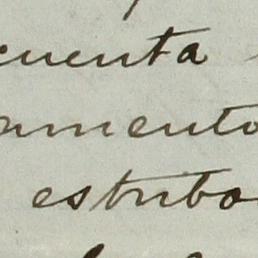 cuenta
amento
estribo